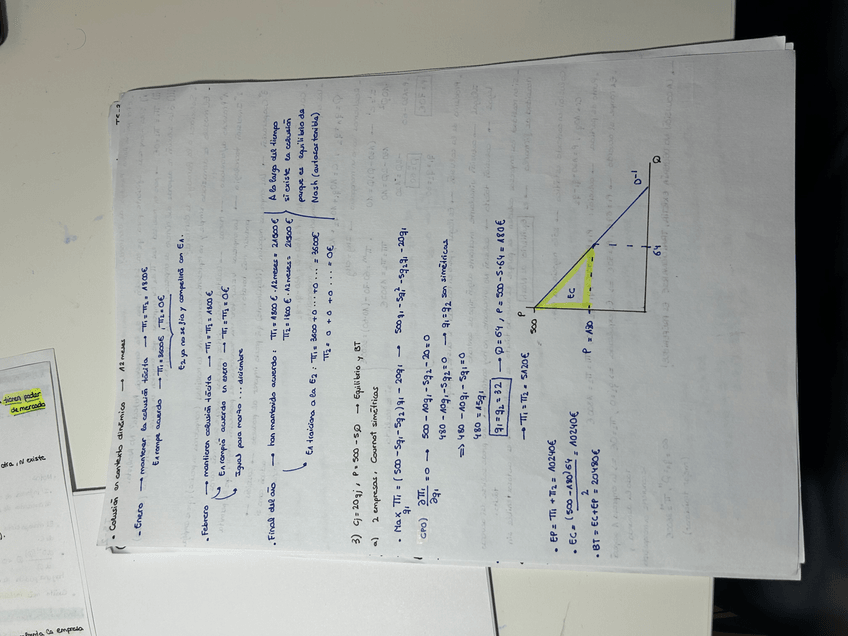 TE_2
• Colusión en contexto dinámico → 12 meses
- Enero → mantener la colusión tácita → π1 = π2 = 1800€
E1 rompe acuerdo → π1 = 3600€, π2 = 0€
E2 ya no se fía y competirá con E1.
• Febrero → mantienen colusión tácita → π1 = π2 = 1800€
↳ E1 rompió acuerdo en enero → π1 = π2 = 0€
↳ igual para marzo ... diciembre
• Final del año → han mantenido acuerdo: π1 = 1800€ · 12 meses = 21600€
π2 = 1800€ · 12 meses = 21600€
A lo largo del tiempo
si existe la colusión
porque es equilibrio de
Nash (autosostenible)
↳ E1 traiciona a la E2: π1 = 3600 + 0 + ... + 0 + ... = 3600€
π2 = 0 + 0 + 0 + ... = 0€
3) Cj = 20qj, P = 500 - 5Q → Equilibrio y BT
a) 2 empresas, Cournot simétricas
• Max π1 = (500 - 5q1 - 5q2)q1 - 20q1 → 500q1 - 5q1² - 5q2q1 - 20q1
q1
CPO) ∂π1/∂q1 = 0 → 500 - 10q1 - 5q2 - 20 = 0
480 - 10q1 - 5q2 = 0 → q1 = q2 son simétricas
⇒ 480 - 10q1 - 5q1 = 0
480 = 15q1
q1 = q2 = 32 → Q = 64, P = 500 - 5·64 = 180€
→ π1 = π2 = 5120€
• EP = π1 + π2 = 10240€
• EC = (500 - 180)64 / 2 = 10240€
• BT = EC + EP = 20480€
P
500
EC
P = 180
64
D⁻¹
Q
tienen poder
de mercado
otra, si existe
la empresa